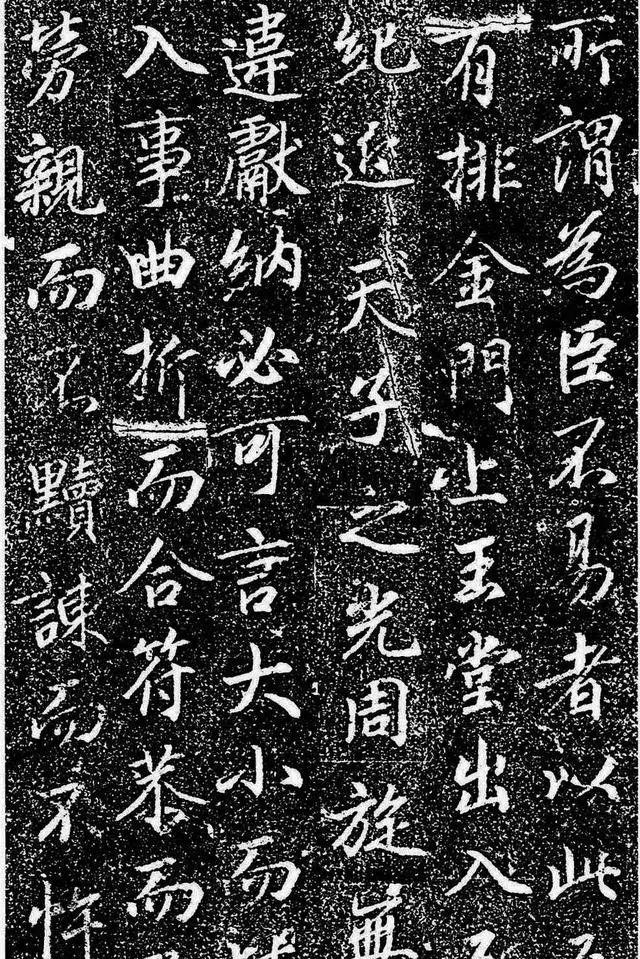 所謂為臣不易者以此
有排金門上玉堂出入
紀近天子之光周旋無
違獻納必可言大小而
入事曲折而合符恭而
勞親而不黷諫而不忤